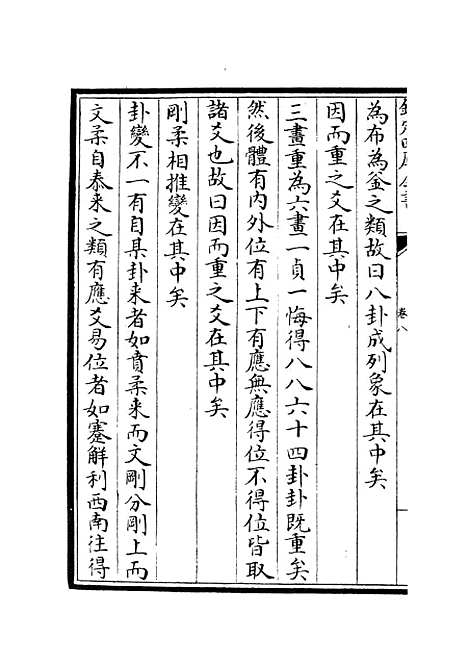 欽定四庫全書
卷八
為布為釜之類故曰八卦成列象在其中矣
因而重之爻在其中矣
三畫重為六畫一貞一悔得八八六十四卦卦既重矣
然後體有内外位有上下有應無應得位不得位皆取
諸爻也故曰因而重之爻在其中矣
剛柔相推變在其中矣
卦變不一有自某卦来者如賁柔来而文剛分剛上而
文柔自泰来之類有應爻易位者如蹇解利西南往得